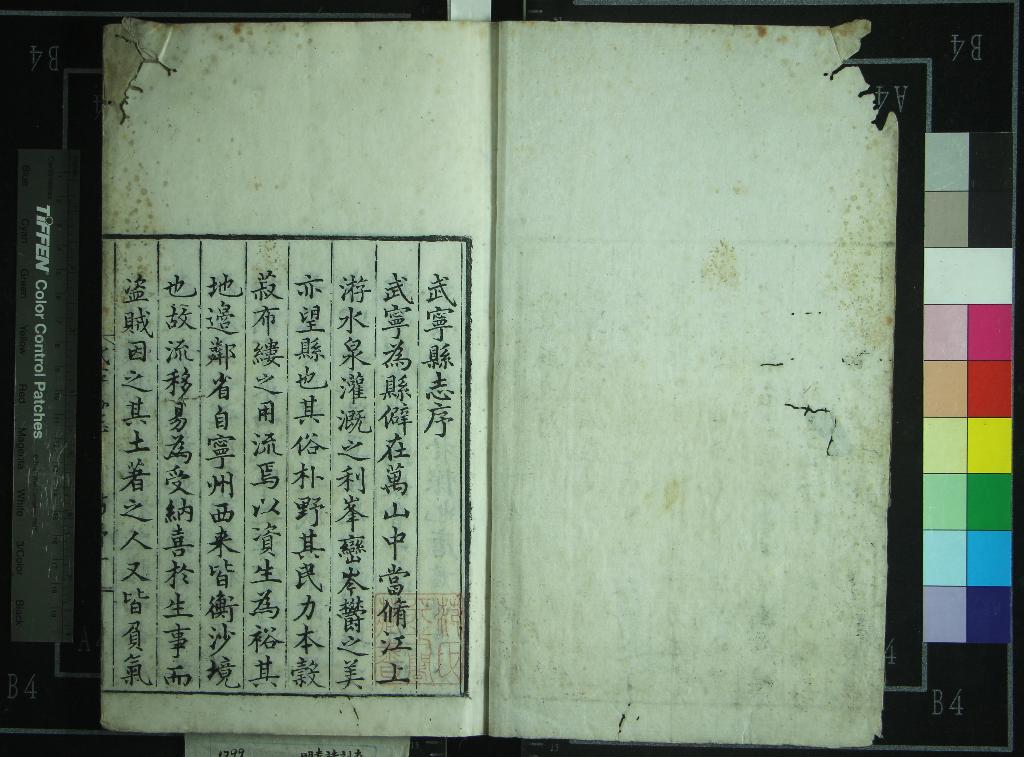 武寧縣志序
武寧為縣僻在萬山中當脩江上
游水泉灌溉之利峯巒岑欝之美
亦望縣也其俗朴野其民力本穀
菽布縷之用流焉以資生為裕其
地邉鄰省自寧州西来皆衡沙境
也故流移易為受納喜於生事而
盗賊因之其土著之人又皆負氣
TIFFEN Color Control Patches
Blue Cyan Green Yellow Red Magenta White 3/Color Black
B4
B4
A4
B4
B4
1799